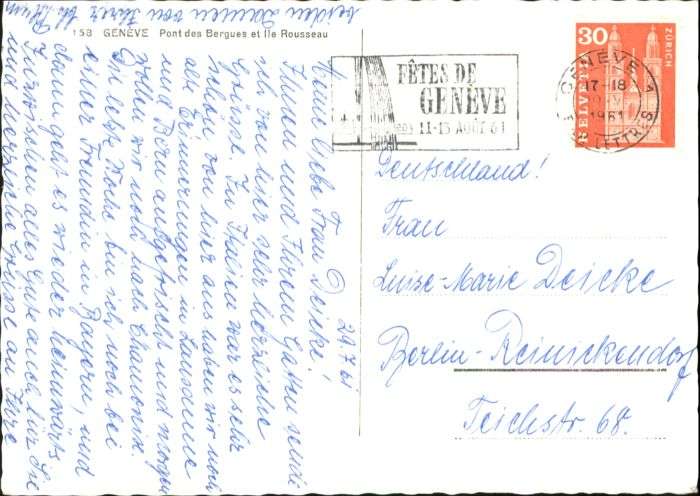 158 GENÈVE Pont des Bergues et Ile Rousseau
FÊTES DE
GENÈVE
11-15 AOÛT 61
GENÈVE 1
17-18
1961
LETTRES
30
HELVETIA
ZÜRICH
Deutschland!
Frau
Luise-Marie Deicke
Berlin-Reinickendorf
Teichstr. 68.
29.7.61
Meine liebe Frau Deicke!
Ihnen und Ihrem Gatten sende
ich von hier sehr herzliche
Grüsse. In Italien war es sehr
schön, von hier aus haben wir noch
alte Erinnerungen in Lausanne
und Bern aufgefrischt und morgen
wollen wir noch nach Chamonix.
Die letzte Woche bin ich noch bei
einer Freundin in Bayern, und
dann geht es wieder heimwärts
Inzwischen alles Gute auch für Sie
und herzliche Grüsse an Ihre
beiden Damen von Ihrer